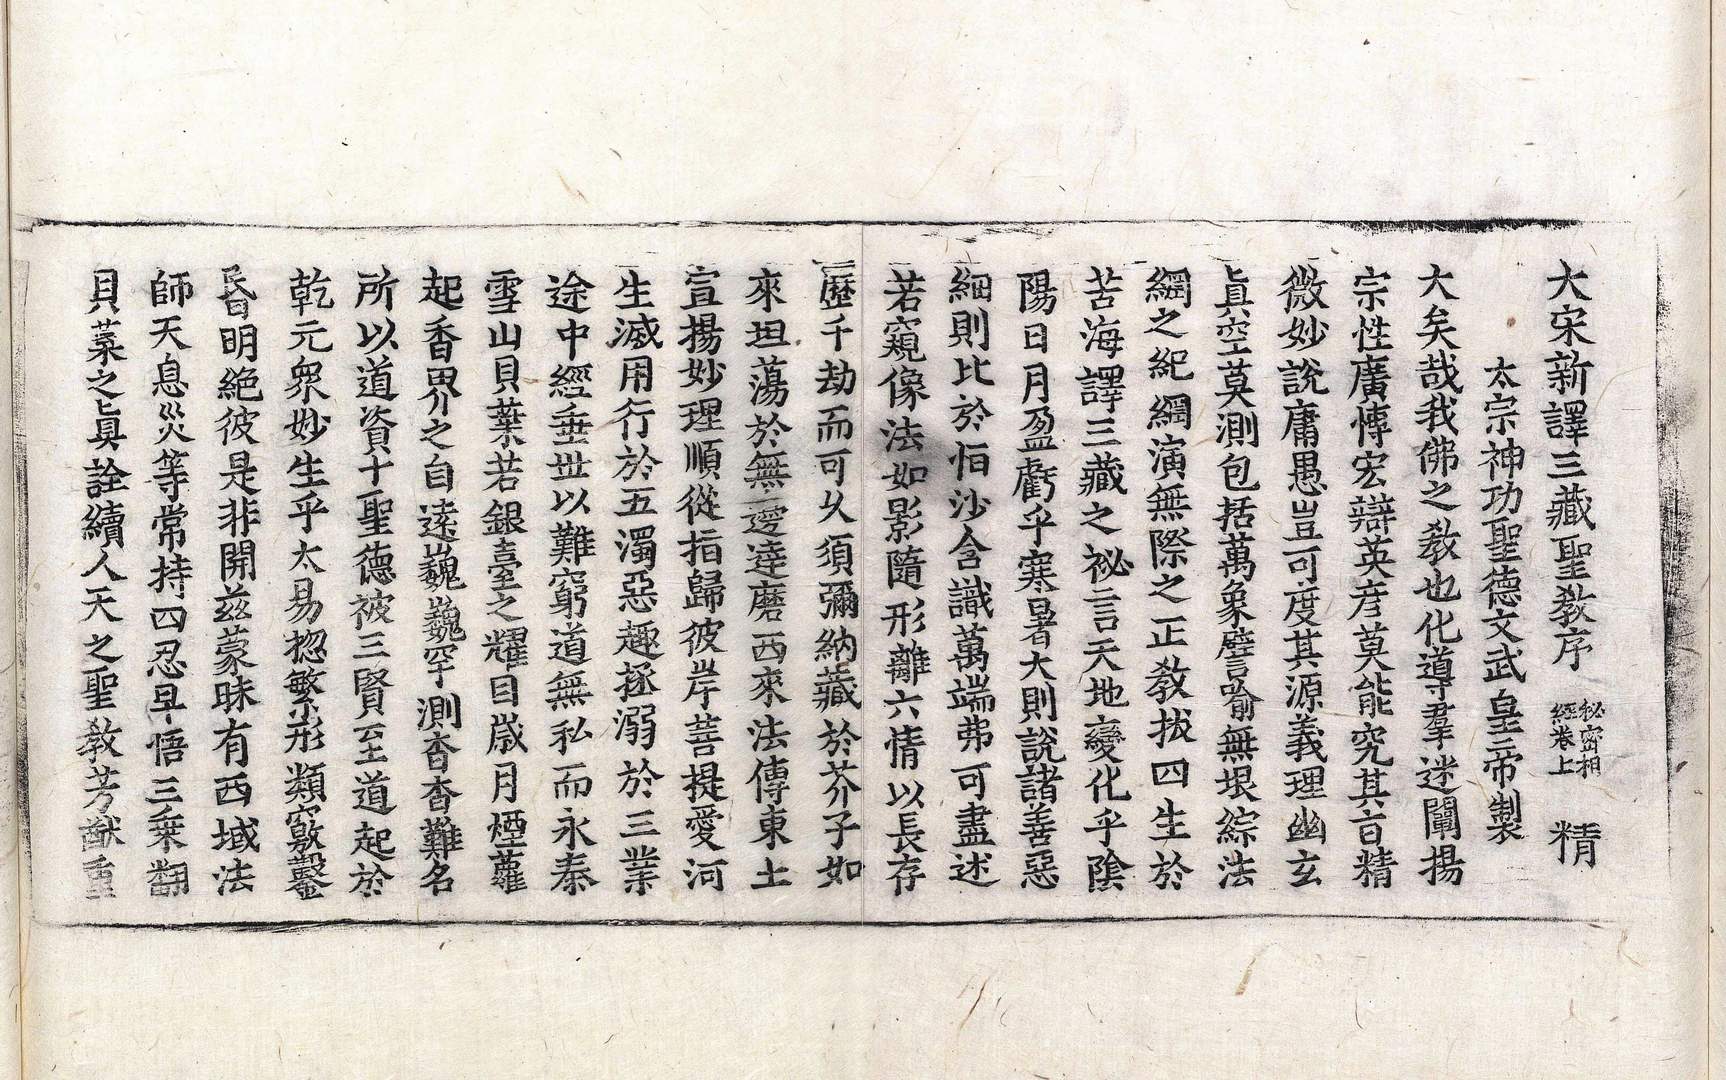 大宋新譯三藏聖教序 秘密相經卷上 精
太宗神功聖德文武皇帝製
大矣哉我佛之教也化導羣迷闡揚
宗性廣博宏辯英彦莫能究其旨精
微妙說庸愚豈可度其源義理幽玄
眞空莫測包括萬象譬喻無垠綜法
網之紀綱演無際之正教拔四生於
苦海譯三藏之祕言天地變化乎陰
陽日月盈虧乎寒暑大則說諸善惡
細則比於恒沙含識萬端弗可盡述
若窺像法如影隨形離六情以長存
歷千劫而可久須彌納藏於芥子如
來坦蕩於無邊達磨西來法傳東土
宣揚妙理順從指歸彼岸菩提愛河
生滅用行於五濁惡趣拯溺於三業
途中經垂世以難窮道無私而永泰
雪山貝葉若銀臺之耀目歲月煙蘿
起香界之自遠巍巍罕測杳杳難名
所以道資十聖德被三賢至道起於
乾元衆妙生乎太易揔繁形類竅鑿
昏明絶彼是非開兹蒙昧有西域法
師天息災等常持四忍早悟三乘翻
貝葉之眞詮續人天之聖教芳猷重